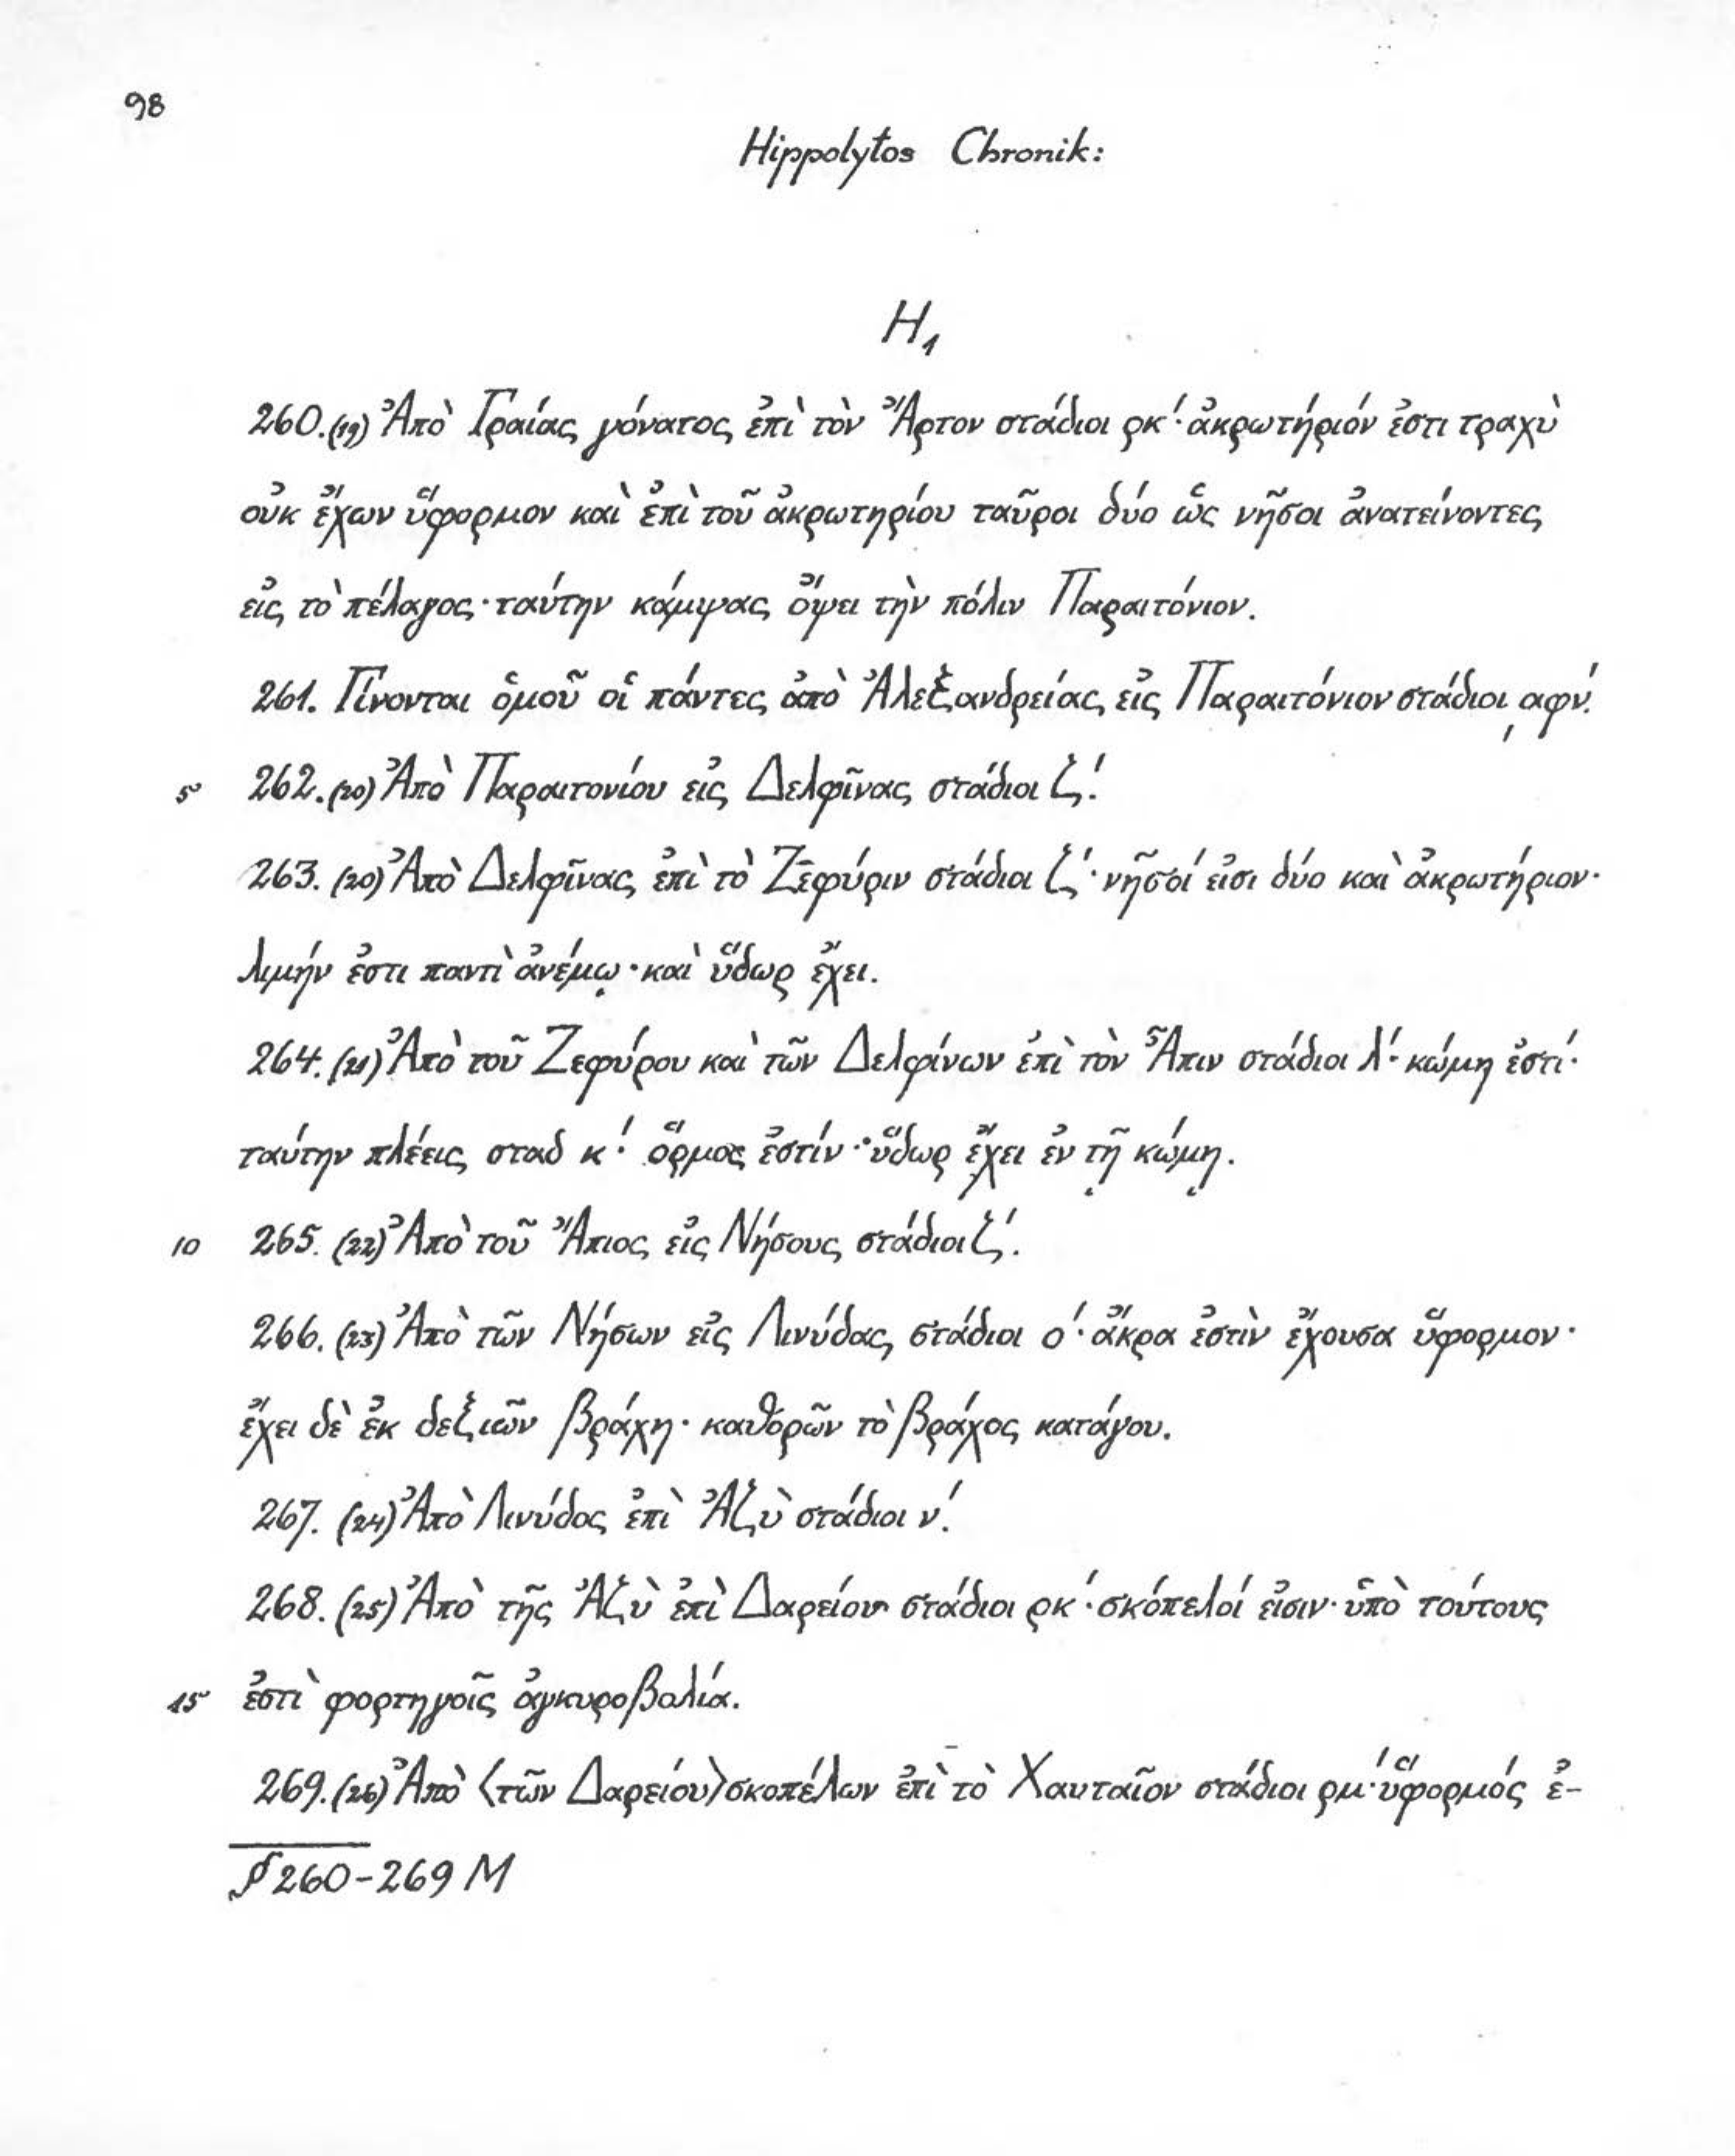 98
Hippolytos Chronik:
H₁
260. (19) Ἀπὸ Γραίας γόνατος ἐπὶ τὸν Ἄρτον στάδιοι ρκʹ· ἀκρωτήριόν ἐστι τραχὺ
οὐκ ἔχων ὕφορμον καὶ ἐπὶ τοῦ ἀκρωτηρίου ταῦροι δύο ὡς νῆσοι ἀνατείνοντες
εἰς τὸ πέλαγος· ταύτην κάμψας ὄψει τὴν πόλιν Παραιτόνιον.
261. Γίνονται ὁμοῦ οἱ πάντες ἀπὸ Ἀλεξανδρείας εἰς Παραιτόνιον στάδιοι ͵αφνʹ.
5 262. (20) Ἀπὸ Παραιτονίου εἰς Δελφῖνας στάδιοι ζʹ.
263. (20) Ἀπὸ Δελφῖνας ἐπὶ τὸ Ζεφύριν στάδιοι ζʹ· νῆσοί εἰσι δύο καὶ ἀκρωτήριον·
λιμήν ἐστι παντὶ ἀνέμῳ· καὶ ὕδωρ ἔχει.
264. (21) Ἀπὸ τοῦ Ζεφύρου καὶ τῶν Δελφίνων ἐπὶ τὸν Ἆπιν στάδιοι λʹ· κώμη ἐστί·
ταύτην πλέεις σταδ κʹ· ὅρμος ἐστίν· ὕδωρ ἔχει ἐν τῇ κώμῃ.
10 265. (22) Ἀπὸ τοῦ Ἄπιος εἰς Νήσους στάδιοι ζʹ.
266. (23) Ἀπὸ τῶν Νήσων εἰς Λινύδας στάδιοι οʹ· ἄκρα ἐστὶν ἔχουσα ὕφορμον·
ἔχει δὲ ἐκ δεξιῶν βράχη· καθορῶν τὸ βράχος κατάγου.
267. (24) Ἀπὸ Λινύδος ἐπὶ Ἀζὺ στάδιοι νʹ.
268. (25) Ἀπὸ τῆς Ἀζὺ ἐπὶ Δαρείου στάδιοι ρκʹ· σκόπελοί εἰσιν· ὑπὸ τούτους
15 ἐστὶ φορτηγοῖς ἀγκυροβολία.
269. (26) Ἀπὸ ⟨τῶν Δαρείου⟩ σκοπέλων ἐπὶ τὸ Χαυταῖον στάδιοι ρμʹ· ὕφορμός ἐ-
§ 260-269 M